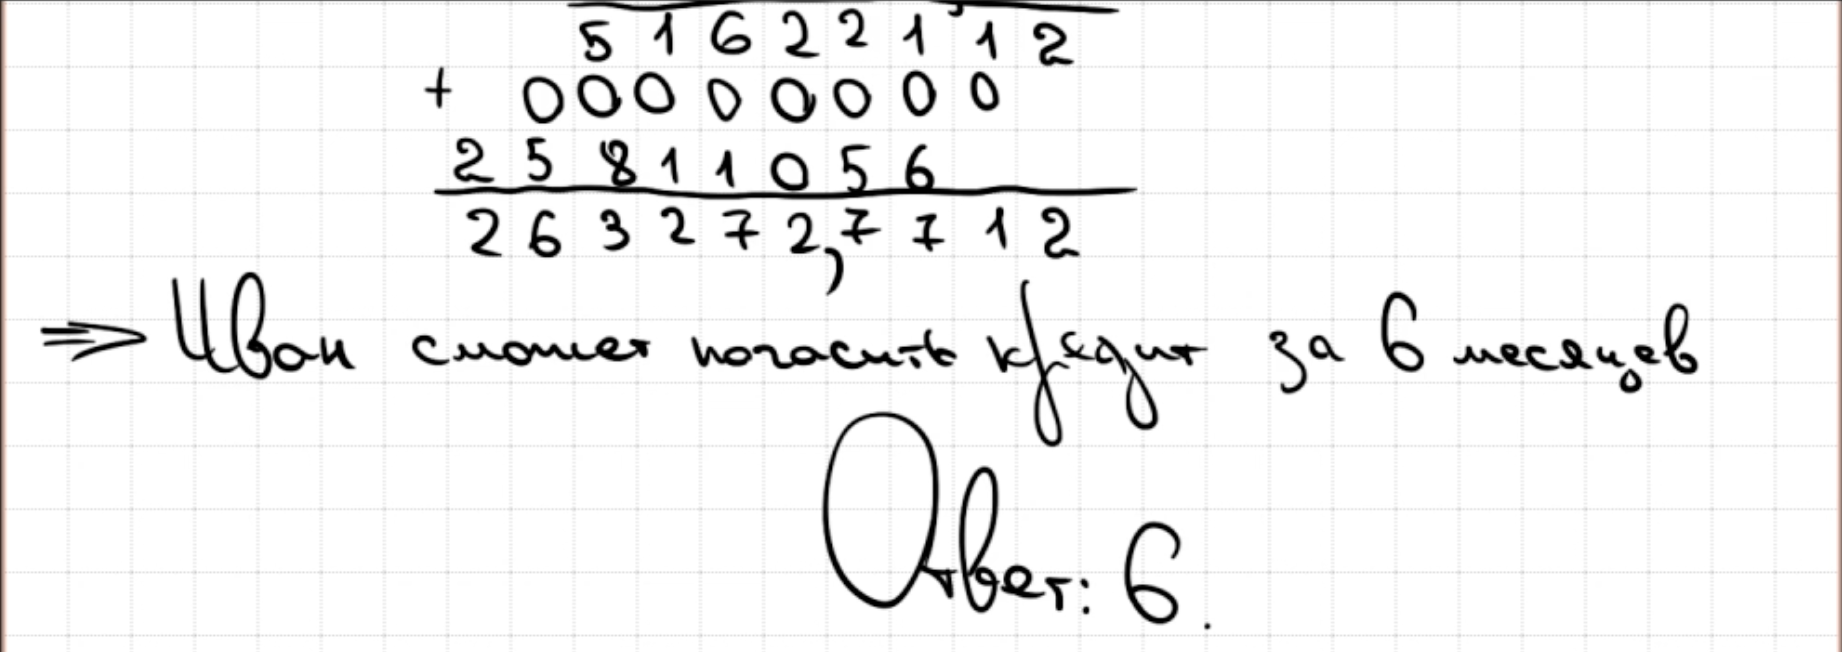 5 1 6 2 2 1 1 2
+ 0 0 0 0 0 0 0 0
2 5 8 1 1 0 5 6
2 6 3 2 7 2,7 7 1 2
=> Иван сможет погасить кредит за 6 месяцев
Ответ: 6.